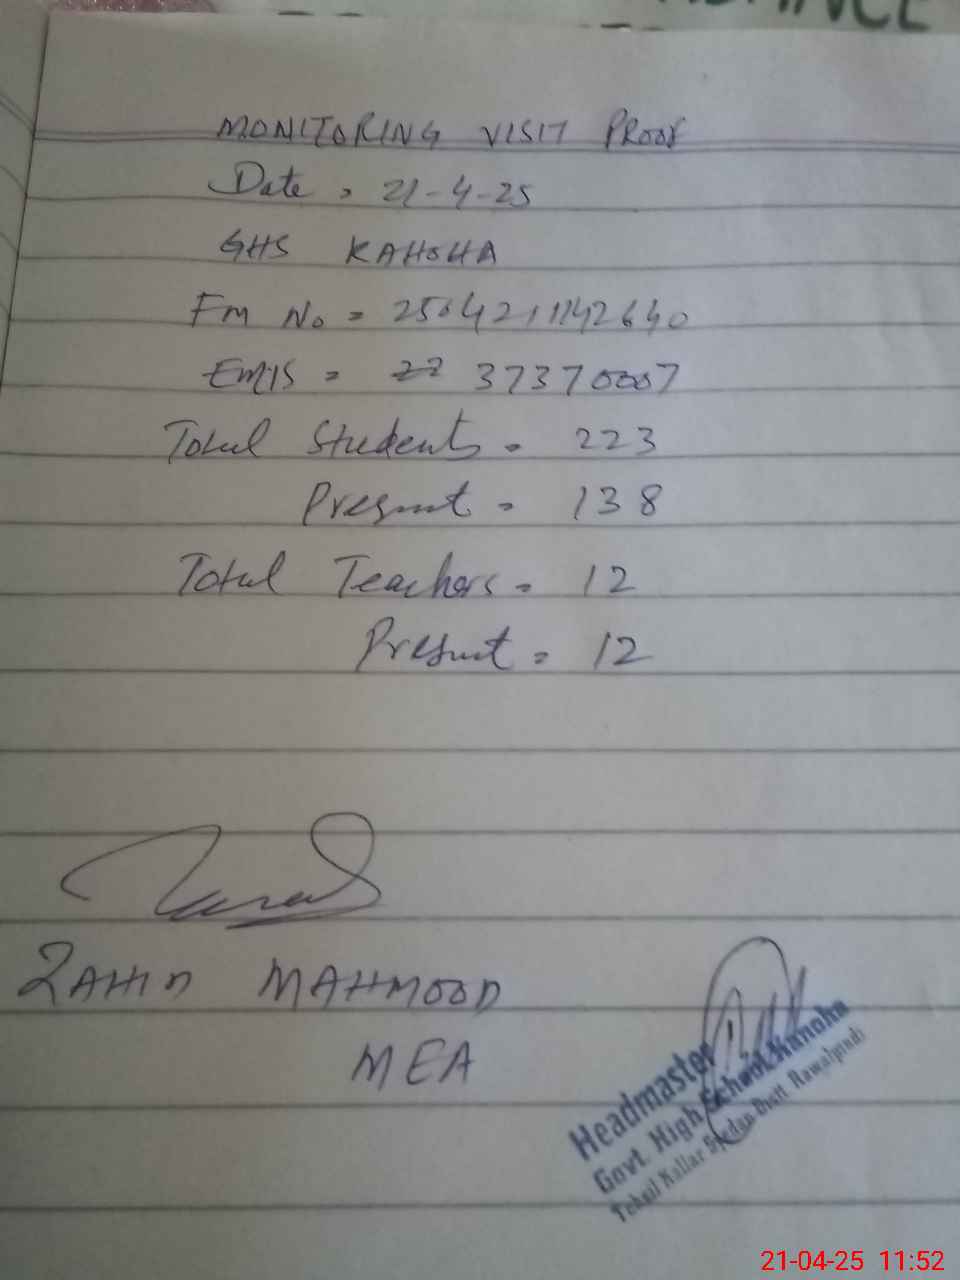 MONITORING VISIT PROOF
Date = 21-4-25
GHS KAHOHA
Fm No = 2504211142640
EMIS = 37370007
Total Students = 223
Present = 138
Total Teachers = 12
Present = 12
ZAHID MAHMOOD
MEA
Headmaster
Govt. High School Nanoha
Tehsil Kallar Syedan Distt Rawalpindi
21-04-25 11:52